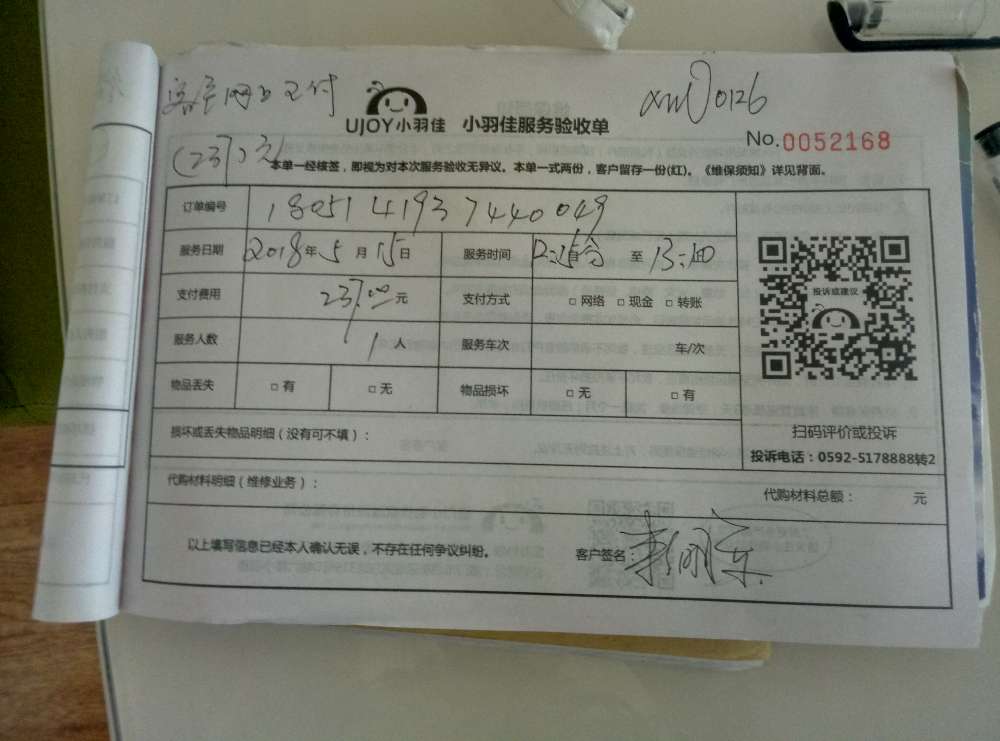 客户网上支付
UJOY小羽佳 小羽佳服务验收单
xm 0126
No.0052168
(237)元
本单一经核签，即视为对本次服务验收无异议。本单一式两份，客户留存一份(红)。《维保须知》详见背面。
订单编号 1805141937440049
服务日期 2018年5月15日 服务时间 至
支付费用 237.00元 支付方式 □网络 □现金 □转账
投诉或建议
服务人数 1人 服务车次 车/次
物品丢失 □有 □无 物品损坏 □无 □有
扫码评价或投诉
投诉电话：0592-5178888转2
损坏或丢失物品明细（没有可不填）：
代购材料明细（维修业务）： 代购材料总额： 元
以上填写信息已经本人确认无误，不存在任何争议纠纷。 客户签名：